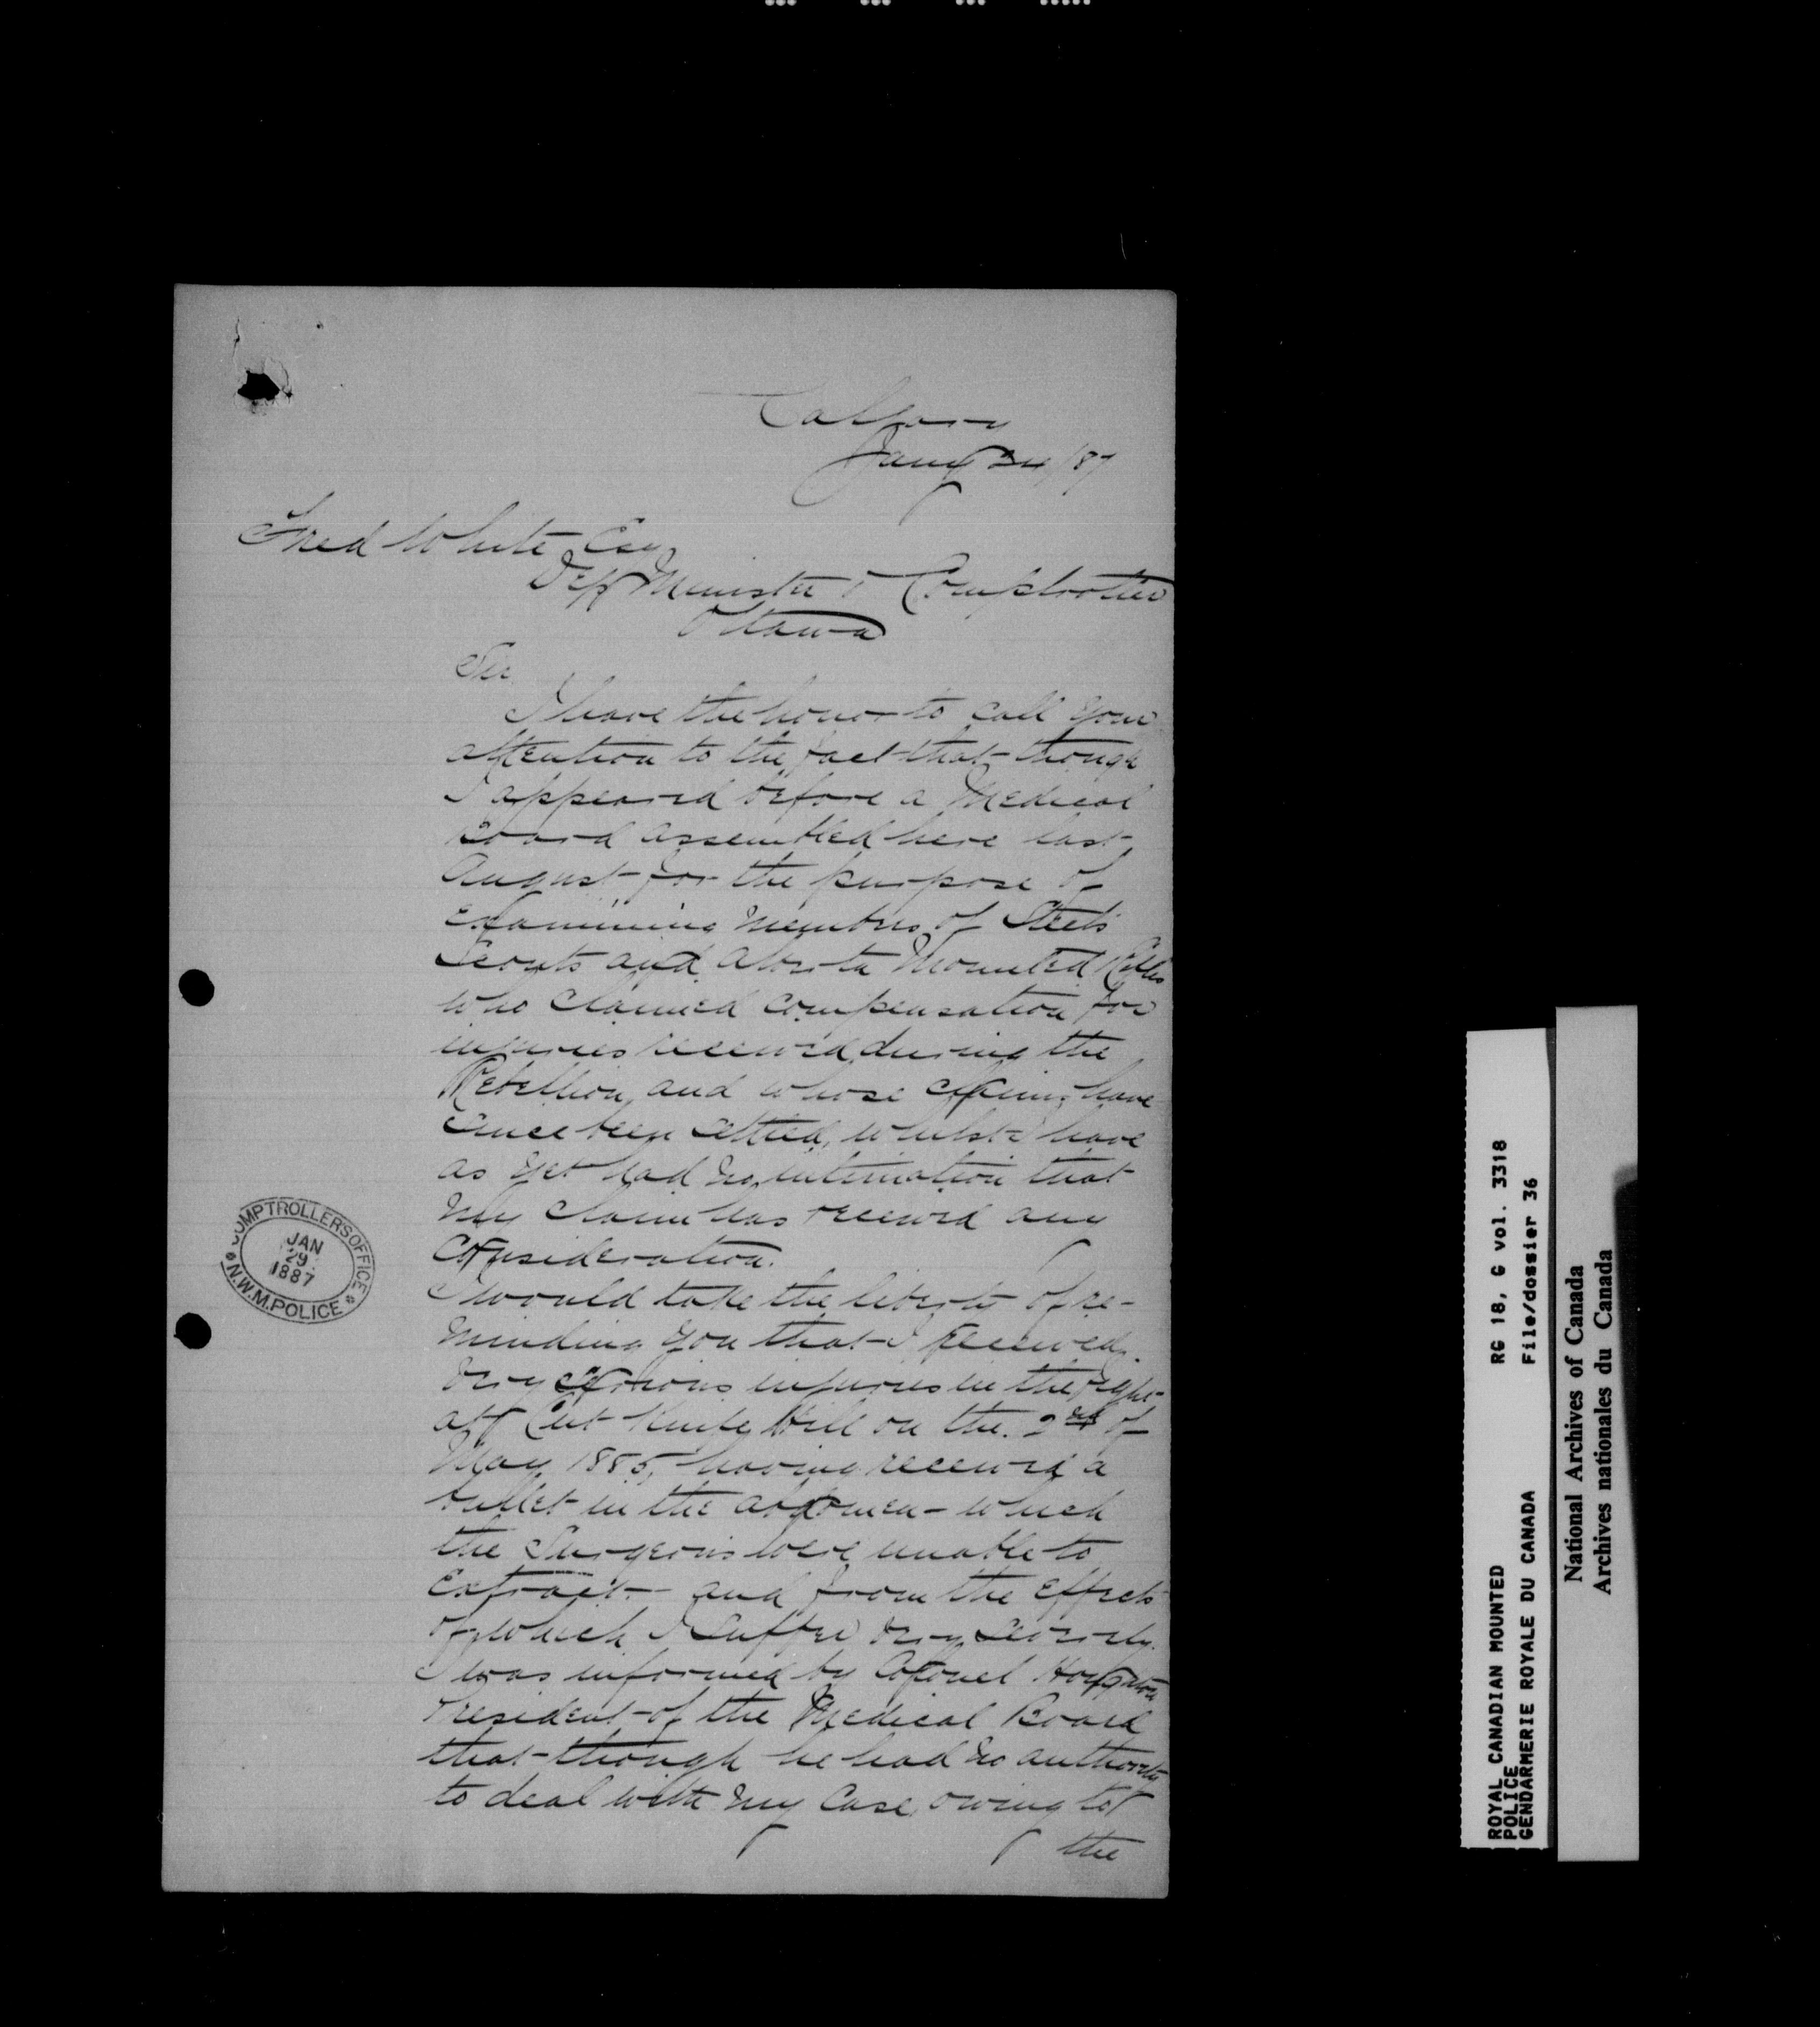 Calgary
Jany 24/87
Fred White Esq
Dep Minister & Comptroller
Ottawa
Sir
I have the honor to call your
attention to the fact that though
I appeared before a Medical
Board assembled here last
August for the purpose of
examining members of Steels
Scouts and Alberta Mounted Rifles
who claimed compensation for
injuries received during the
Rebellion, and whose claims have
since been settled, whilst I have
as yet had no intimation that
my claim has received any
consideration.
I would take the liberty of re-
minding you that I received
very serious injuries in the fight
at Cut Knife Hill on the 2nd of
May 1885, having received a
bullet in the abdomen - which
the Surgeons were unable to
extract - and from the effects
of which I suffer very severely.
I was informed by Colonel Houghton
President of the Medical Board
that though he had no authority
to deal with my case, owing to
the
COMPTROLLERS OFFICE
JAN
29
1887
N.W.M. POLICE
ROYAL CANADIAN MOUNTED RG 18, G vol. 3318
POLICE
GENDARMERIE ROYALE DU CANADA File/dossier 36
National Archives of Canada
Archives nationales du Canada